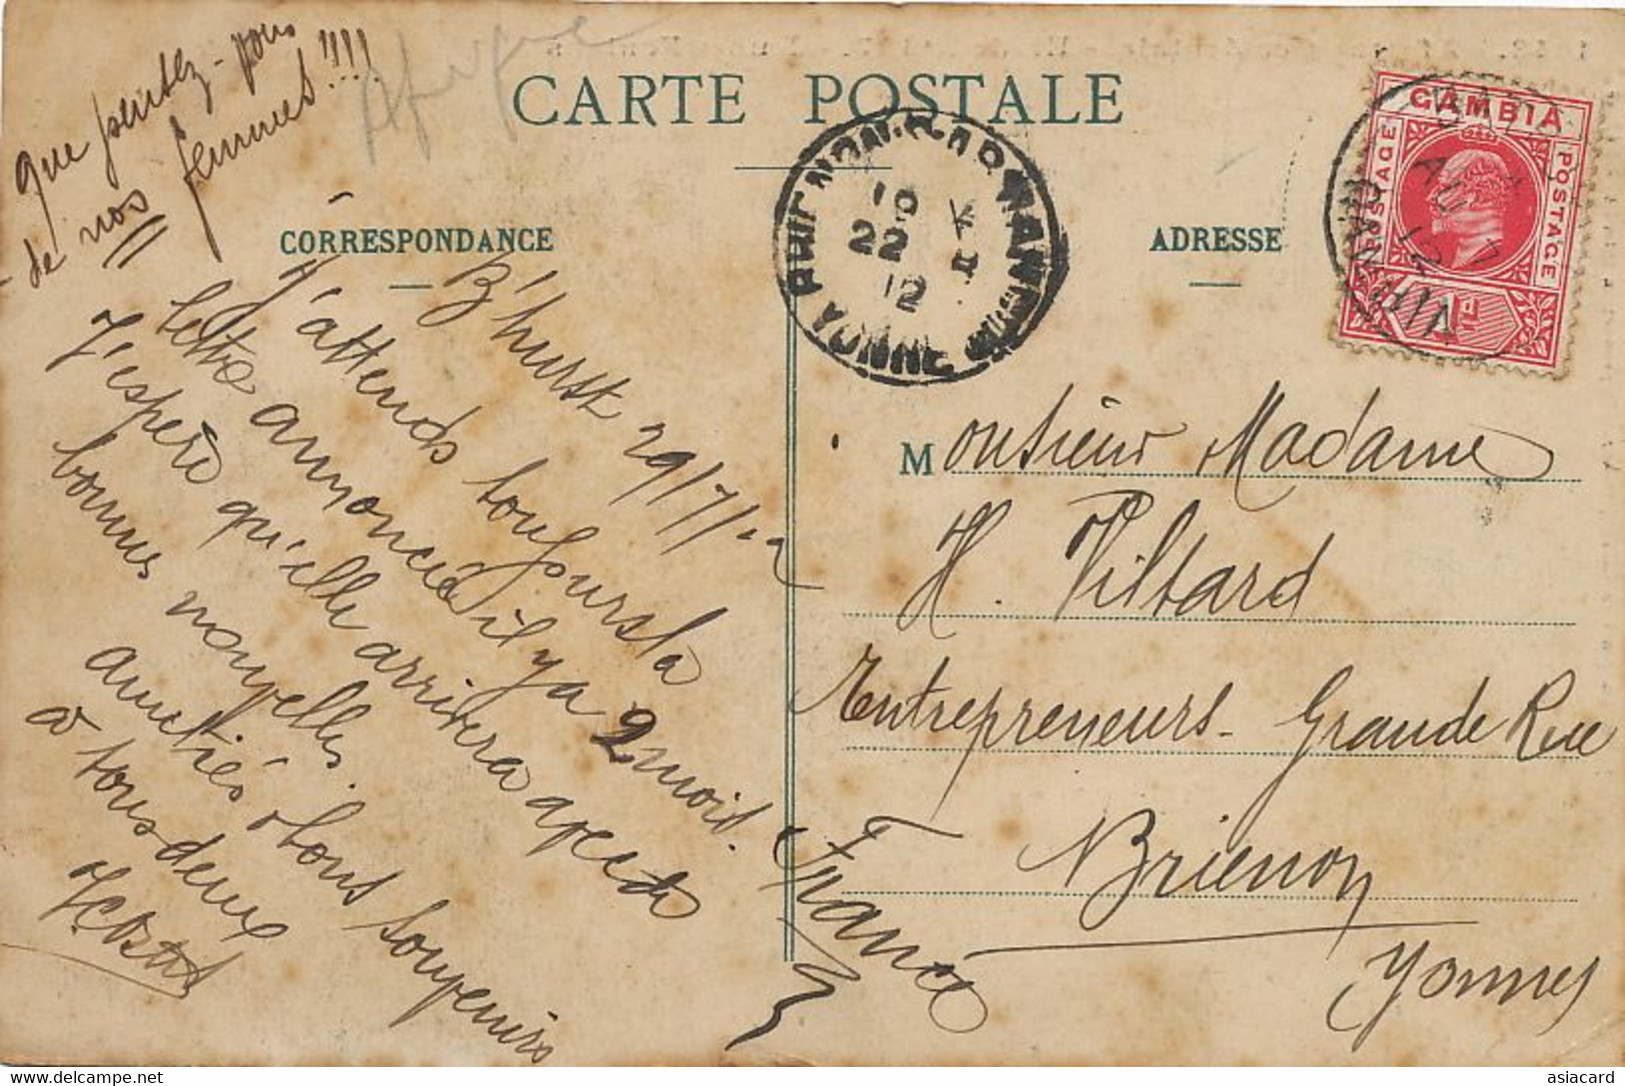 que pensez-vous
de nos femmes!!!!
Afrique
CARTE POSTALE
CORRESPONDANCE
ADRESSE
B'hurst 29/7/12
J'attends toujours la
lettre annoncée il y a 2 mois.
J'espère qu'elle arrivera après de
bonnes nouvelles.
amitiés & bons souvenirs
à tous deux
GAMBIA
POSTAGE
POSTAGE
1D
BATHURST
AU 7
12
GAMBIA
BRIENON-S-ARMANÇON
YONNE
22
12
Monsieur Madame
H. Villard
Entrepreneurs - Grande Rue
Brienon
Yonne
France
asiacard